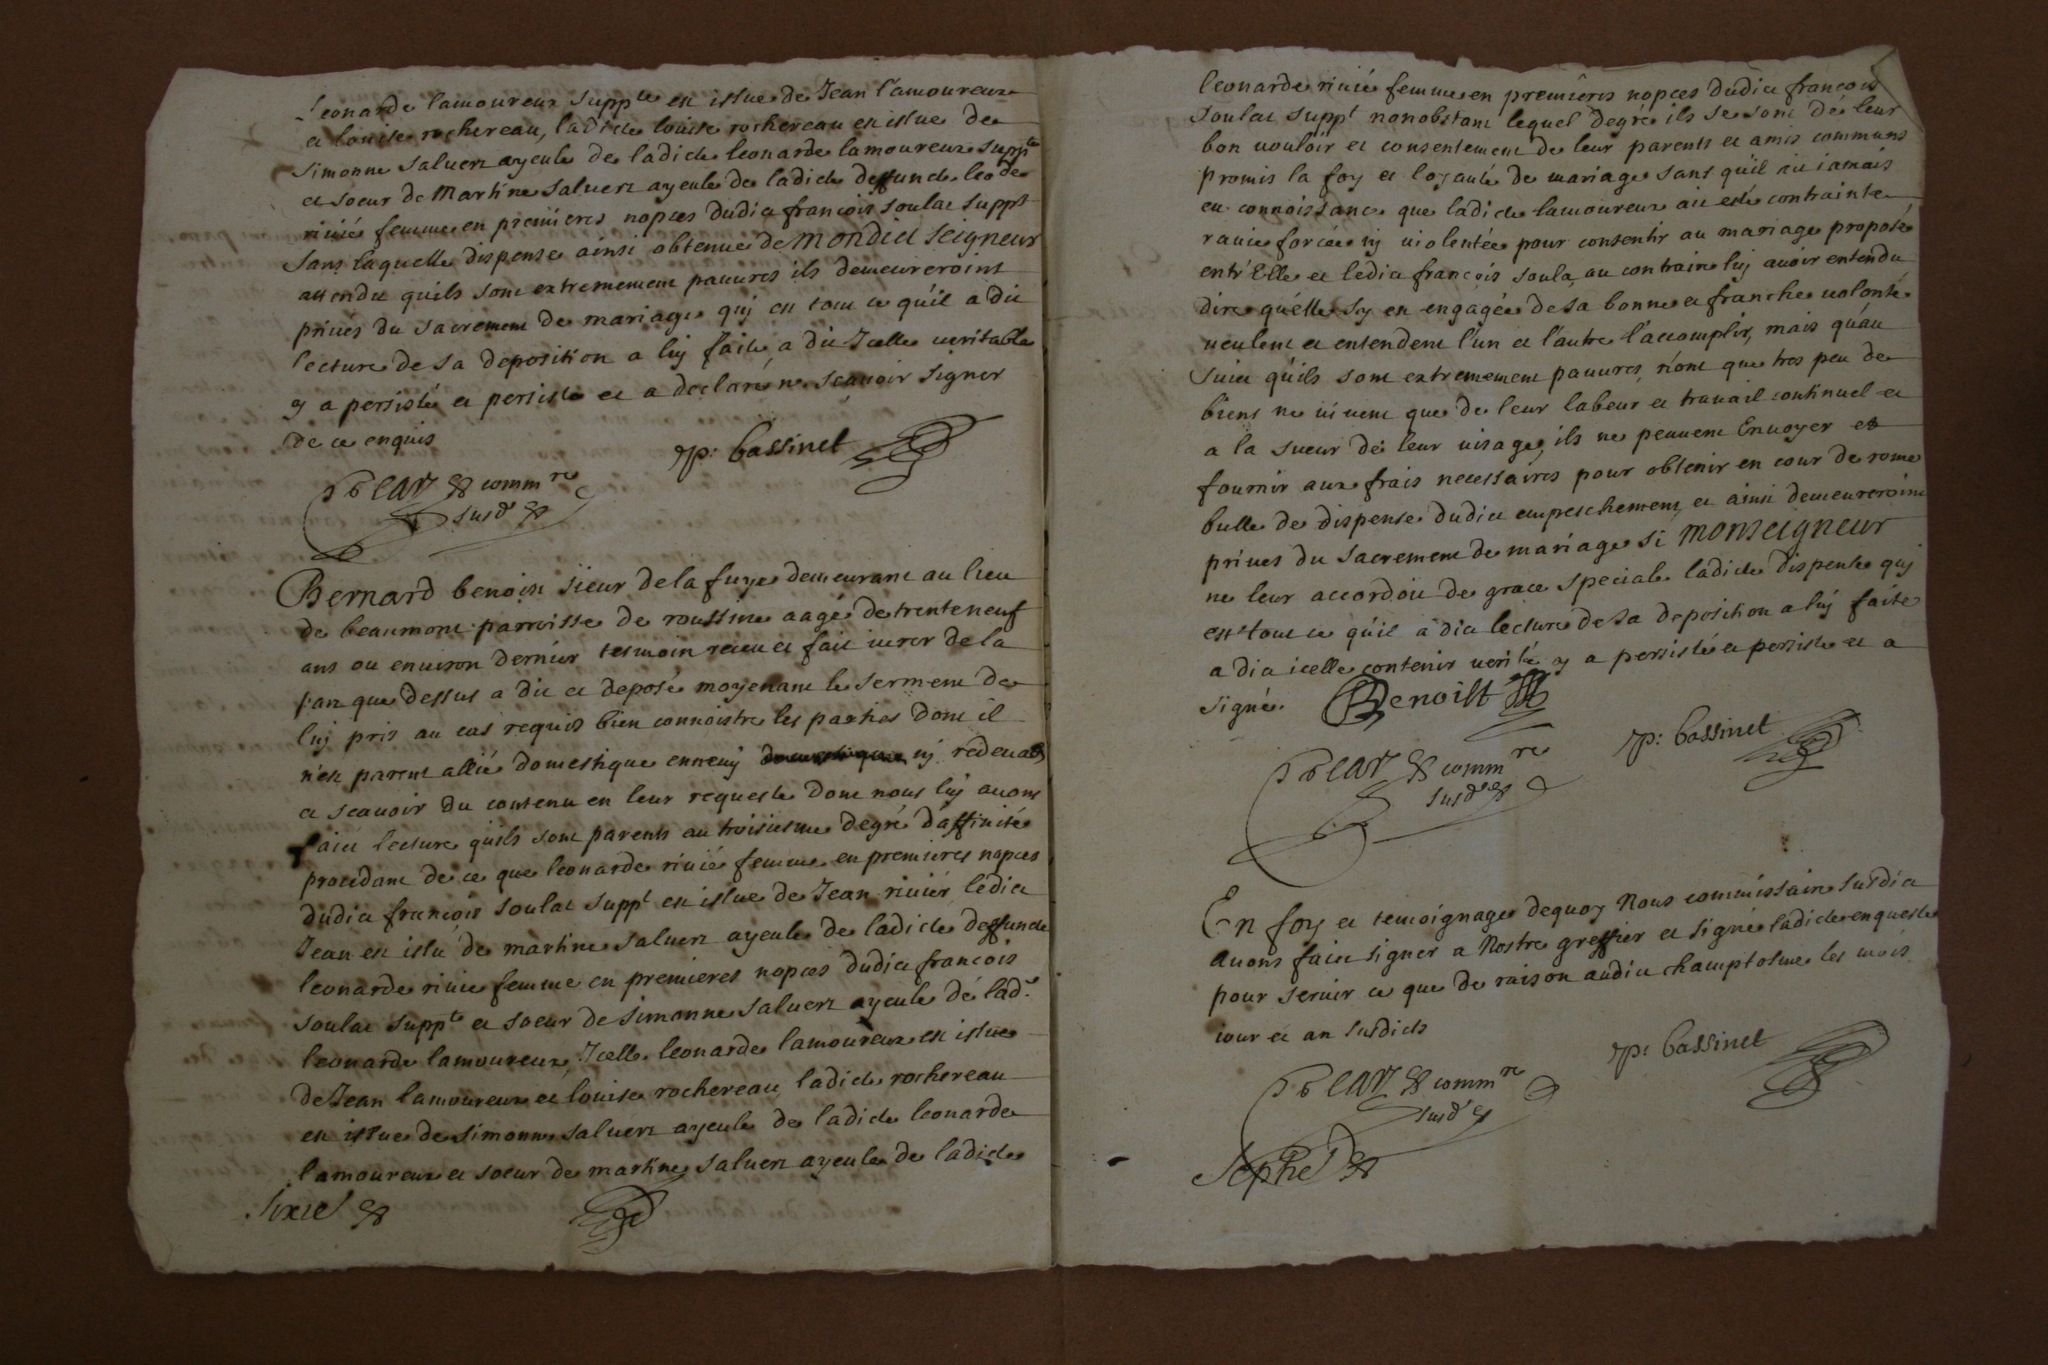 Leonarde lamoureux supp^te est issue de Jean lamoureux
et louise rochereau, ladicte louise rochereau est issue de
simonne saluert ayeule de ladicte leonarde lamoureux supp^te
et soeur de Martine saluert ayeule de ladicte deffuncte leo^de
riuié femme en premieres nopces dudict francois soulat suppt
sans laquelle dispense ainsi obtenue de mondict seigneur
attendu quils sont extremement pauures ils demeureroint
priués du sacrement de mariage quy est tout ce qu'il a dit
lecture de sa deposition a luy faite a dit Icelle veritable
y a persisté et persiste et a declaré ne scauoir signer
de ce enquis
p: bassinet
comm^re
susd^t
Bernard benoist sieur de la fuye demeurant au lieu
de beaumont parroisse de roussine aagé de trente neuf
ans ou enuiron dernier tesmoin receu et fait iurer de la
part que dessus a dit et deposé moyenant le serment de
luy pris au cas requis bien connoistre les parties dont il
n'est parent allié domestique ennemy ny redeuable
et scauoir du contenu en leur requeste dont nous luy auons
faict lecture quils sont parents au troisiesme degré d'affinité
procedant de ce que leonarde riuié femme en premieres nopces
dudict francois soulat suppt est issue de Jean riuiér ledict
Jean est issu de martine saluert ayeule de ladicte deffuncte
leonarde riuie femme en premieres nopces dudict francois
soulat supp^t et soeur de simonne saluert ayeule de lad^e
leonarde lamoureux, Icelle leonarde lamoureux est issue
de Jean lamoureux et louise rochereau, ladicte rochereau
est issue de simonne saluert ayeule de ladicte leonarde
lamoureux et soeur de martine saluert ayeule de ladicte
sixie
leonarde riuié femme en premieres nopces dudict francois
soulat suppt nonobstant lequel degré ils se sont de leur
bon uouloir et consentement de leur parents et amis communs
promis la foy et loyauté de mariage sans qu'il ait iamais
eu connoissance que ladicte lamoureux ait esté contrainte
rauie forcée ny uiolentée pour consentir au mariage proposé
entr'Elle et ledict francois soula, au contraire luy auoir entendu
dire qu'elle s'y est engagée de sa bonne et franche uolonté
ueulent et entendent l'un et l'autre l'accomplir, mais qu'au
suiet qu'ils sont extremement pauures n'ont que tres peu de
biens ne uiuent que de leur labeur et trauail continuel et
a la sueur de leur uisage, ils ne peuuent Enuoyer et
fournir aux frais necessaires pour obtenir en cour de rome
bulle de dispense dudict empeschement, et ainsi demeureroint
priues du sacrement de mariage si monseigneur
ne leur accordoit de grace speciale ladicte dispense quy
est tout ce qu'il a dict lecture de sa deposition a luy faite
a dict icelle contenir uerité y a persisté et persiste et a
signé. Benoist
p: bassinet
comm^re
susd^t
En foy et temoignage dequoy Nous commissaire susdict
auons faict signer a Nostre greffier et signé ladicte enqueste
pour seruir ce que de raison audict champtolme les mois
iour et an susdicts
p: bassinet
comm^re
susd^t